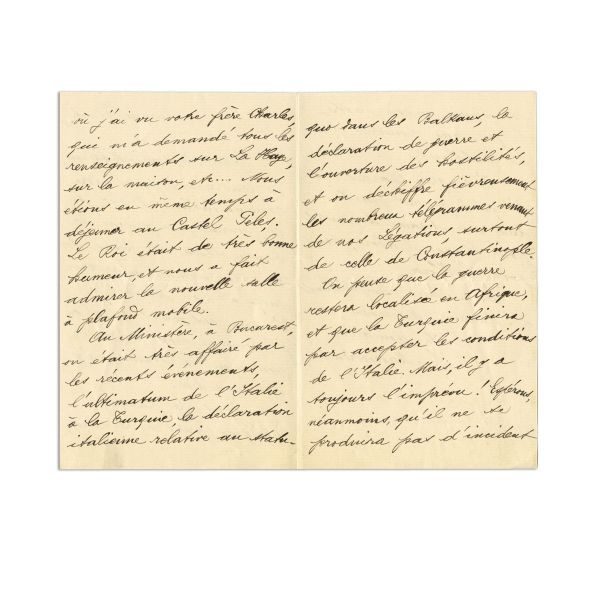 où j'ai vu votre frère Charles,
qui m'a demandé tous les
renseignements sur La Haye,
sur la maison, etc... Nous
étions en même temps à
déjeuner au Castel Peles.
Le Roi était de très bonne
humeur, et nous a fait
admirer la nouvelle salle
à plafond mobile.
Au Ministère, à Bucarest,
on était très affairé par
les récents événements,
l'ultimatum de l'Italie
à la Turquie, la déclaration
italienne relative au statu-
quo dans les Balkans, la
déclaration de guerre et
l'ouverture des hostilités,
et on déchiffre fièvreusement
les nombreux télégrammes venant
de nos Légations, surtout
de celle de Constantinople.
On pense que la guerre
restera localisée en Afrique,
et que la Turquie finira
par accepter les conditions
de l'Italie. Mais, il y a
toujours l'imprévu! Espérons,
néanmoins, qu'il ne se
produira pas d'incident